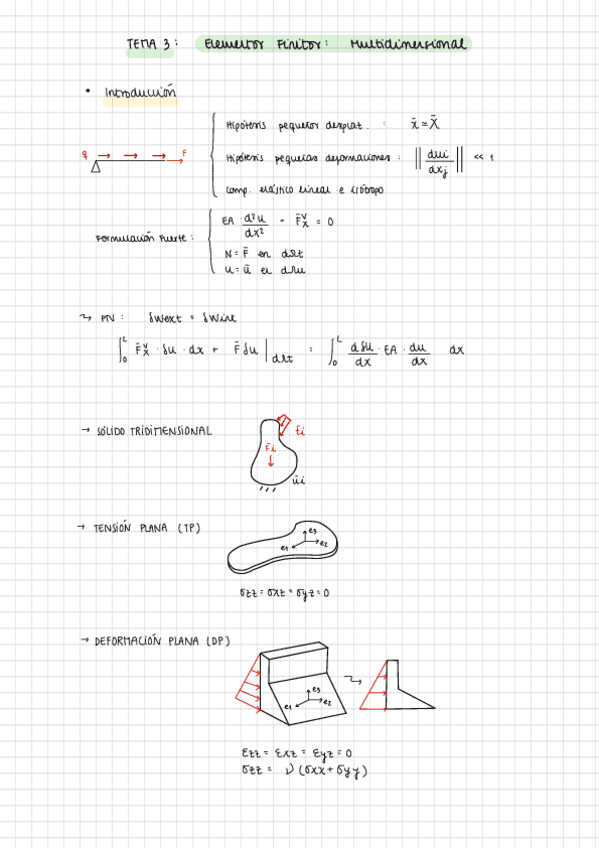 TEMA 3: Elementos Finitos: Multidimensional
• Introducción
q F
Hipótesis pequeños desplat. : x̄ ≈ X̄
Hipótesis pequeñas deformaciones : || dui/dxj || << 1
Comp. elástico lineal e isótropo
Formulación Fuerte:
EA · d²u/dx² - F̄ˣᵛ = 0
N = F̄ en dΩt
u = ū en dΩu
↝ PTV: δWext = δWint
∫₀ᴸ F̄ₓⱽ · δu · dx + F̄ δu |dΩt = ∫₀ᴸ dδu/dx · EA · du/dx dx
→ SÓLIDO TRIDIMENSIONAL
t̄i
F̄i
ūi
→ TENSIÓN PLANA (TP)
e3
e1 e2
σzz = σxz = σyz = 0
→ DEFORMACIÓN PLANA (DP)
e3
e1 e2
εzz = εxz = εyz = 0
σzz = ν (σxx + σyy)